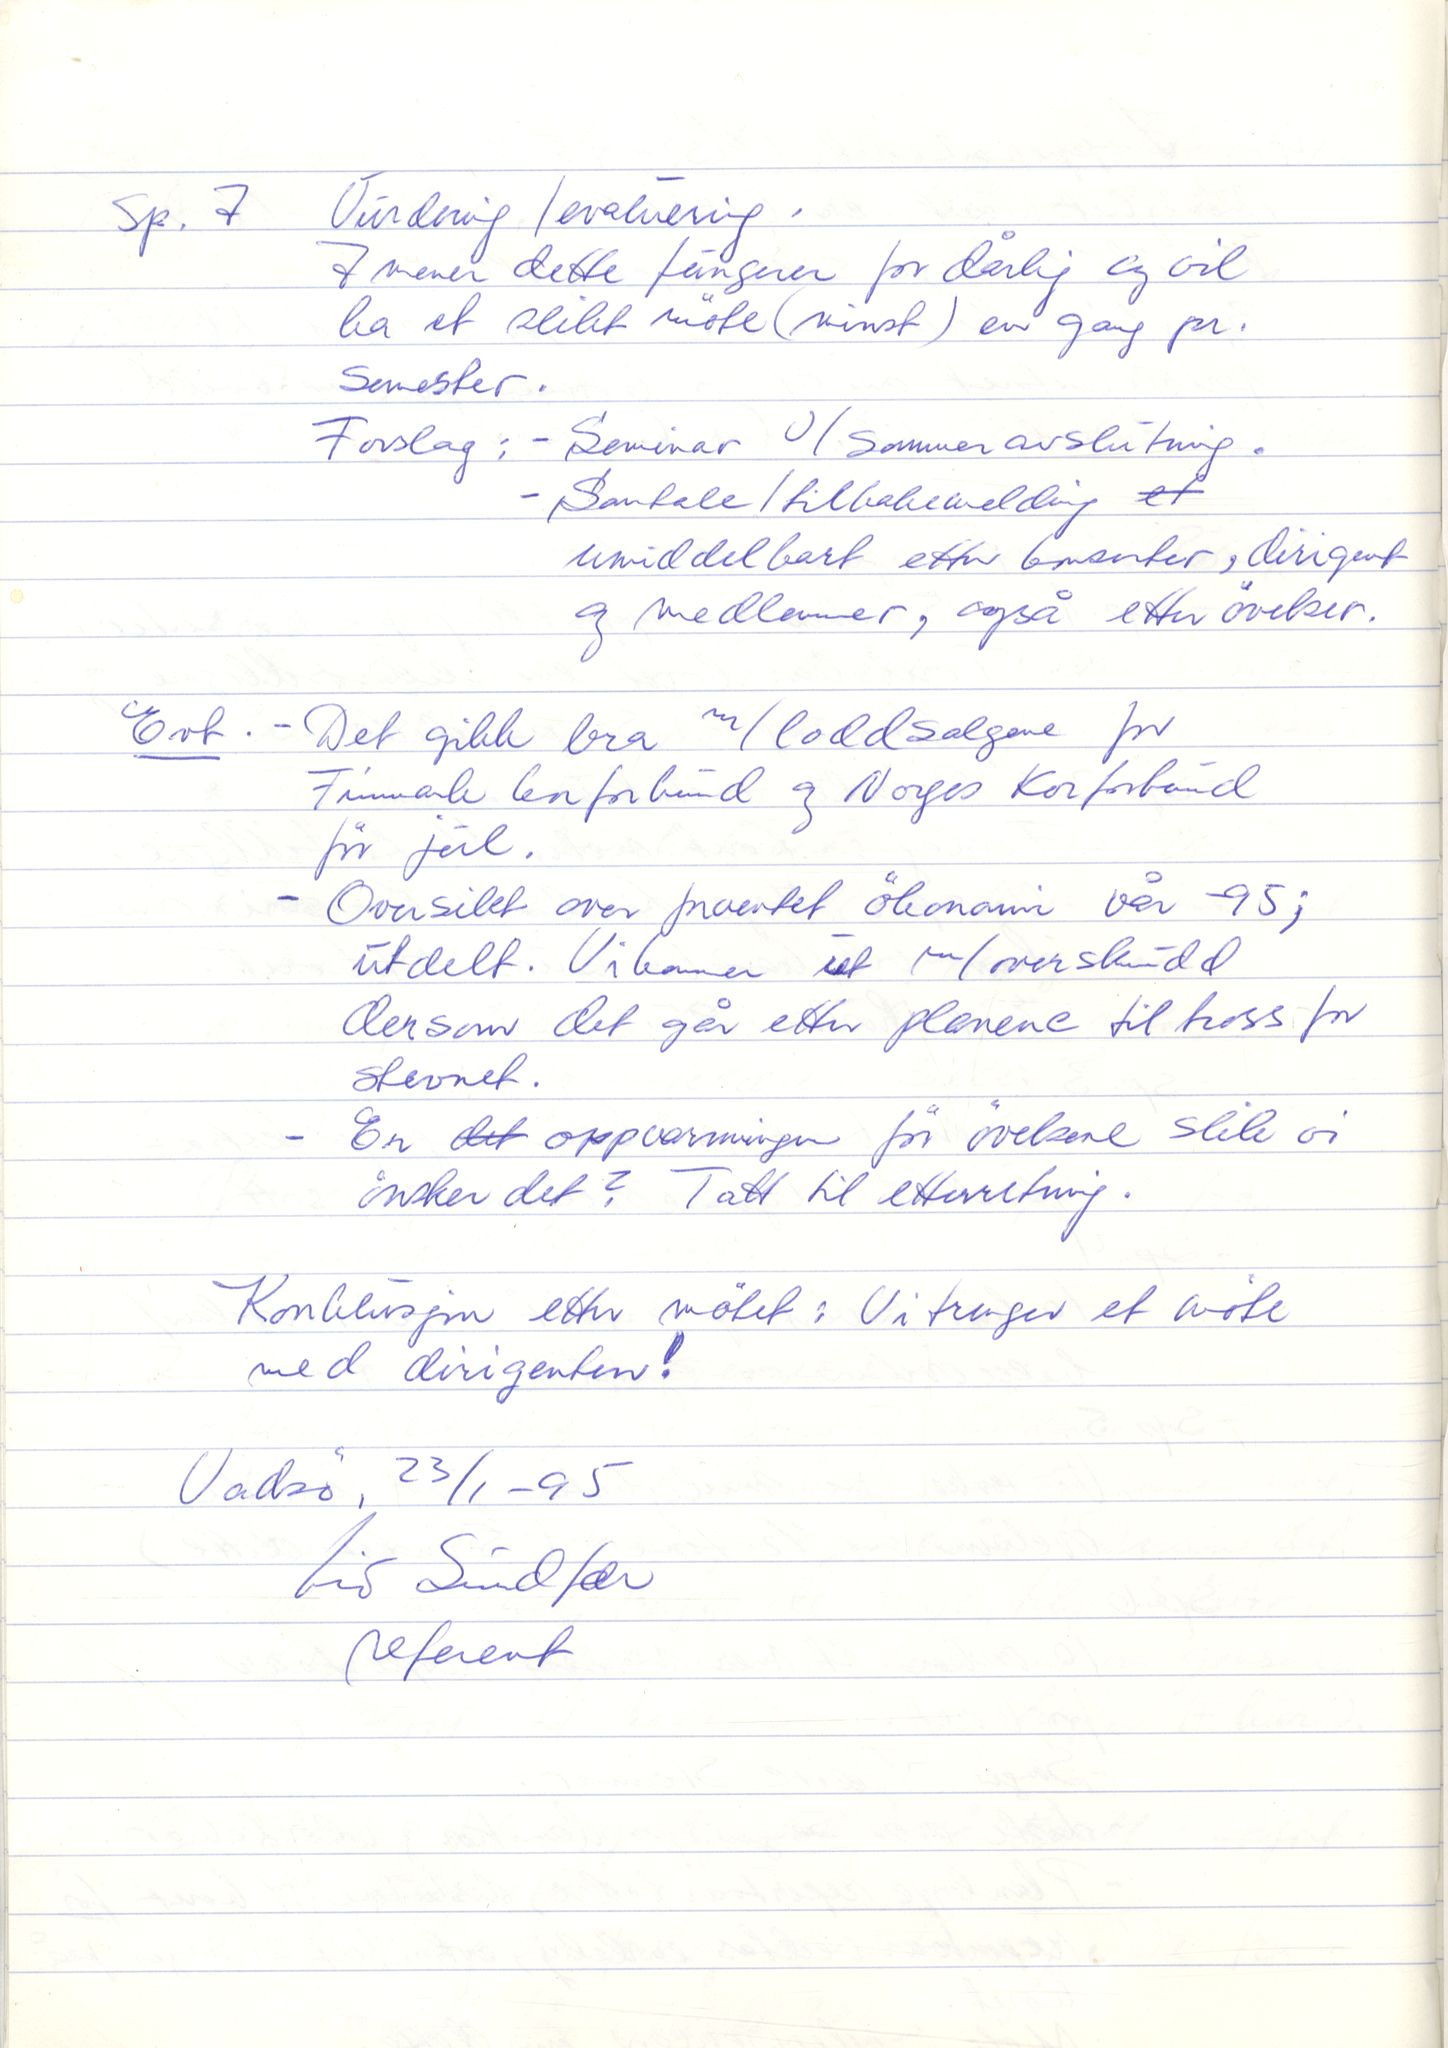 Sp. 7 Vurdering / evaluering.
7 mener dette fungerer for dårlig og vil
ha et slikt möte (minst) en gang pr.
semester.
Forslag: - Seminar v/ sommeravslutning.
- Samtale / tilbakemelding et
umiddelbart etter konserter, dirigent
og medlemmer, også etter övelser.
Evt. - Det gikk bra m/ loddsalgene for
Finnmark korforbund og Norges Korforbund
för jul.
- Oversikt over proventet ökonomi vår -95;
utdelt. Vi kommer ut m/ overskudd
dersom det går etter planene til tross for
stevnet.
- Er det oppvarmingen för övelsene slik vi
önsker det? Tatt til etterretning.
Konklusjon etter mötet: Vi trenger et möte
med dirigenten!
Vadsö, 23/1 -95
Liv Sundfær
referent